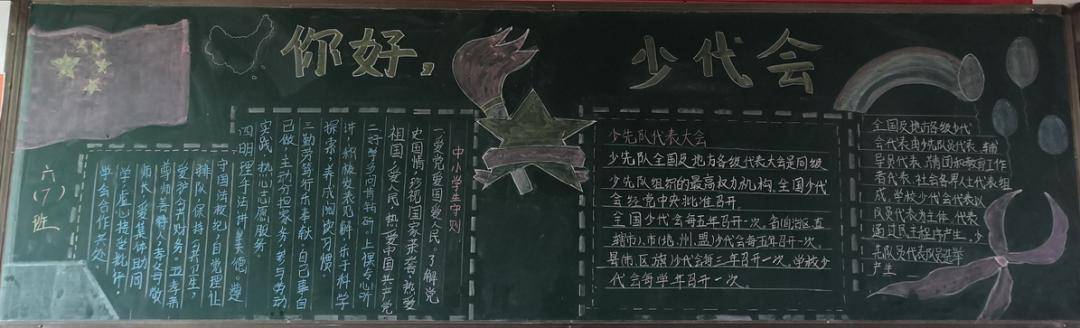 你好，少代会
六（7）班
中小学生守则
一爱党爱国爱人民。了解党
史国情，珍视国家荣誉，热爱
祖国，爱人民，热爱中国共产党
二好学多问肯钻研。上课专心听
讲，积极发表见解，乐于科学
探索，养成阅读习惯
三勤劳笃行乐奉献。自己事自
己做，主动分担家务，参与劳动
实践，热心志愿服务。
四明理守法讲美德。遵
守国法校纪，自觉礼让
排队，保持公共卫生，
爱护公共财物。五孝亲
尊师善待人。孝父母敬
师长，爱集体助同
学，虚心接受批评，
学会合作共处
少先队代表大会
少先队全国及地方各级代表大会是同级
少先队组织的最高权力机构。全国少代
会经党中央批准召开
全国少代会每五年召开一次。省(自治区、直
辖市)、市(地、州、盟)少代会每五年召开一次。
县(市、区、旗)少代会每三年召开一次。学校少
代会每学年召开一次。
全国及地方各级少代
会代表由少先队员代表、辅
导员代表、
教育工作
者代表、社会各界人士代表组
成。学校少代会代表以
队员代表为主体，代表
通过民主程序产生，少
先队员代表队员选举
产生